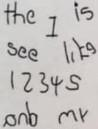 the I is
see like
12345
and my